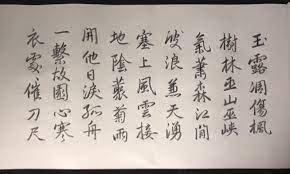 玉露凋傷楓
樹林巫山巫峽
氣蕭森江間
波浪兼天湧
塞上風雲接
地陰叢菊兩
開他日淚孤舟
一繫故園心寒
衣處催刀尺